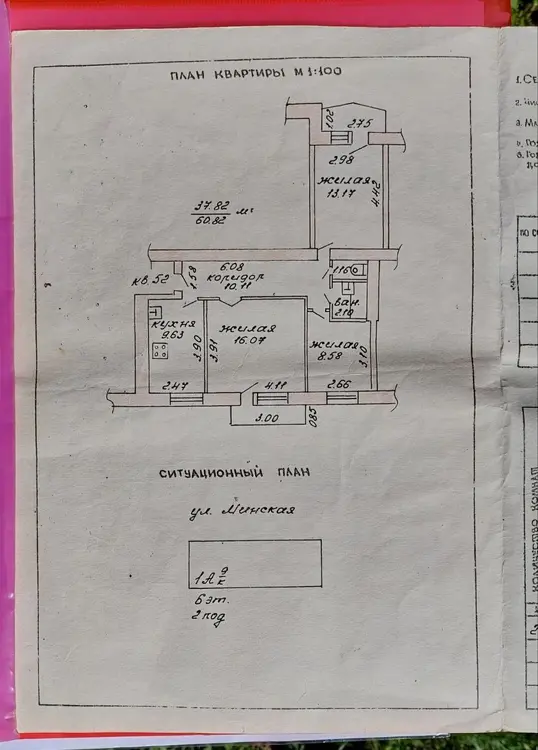 ПЛАН КВАРТИРЫ М 1:100
1.02
2.75
2.98
жилая
13.17
4.42
37.82
60.82 м²
6.08
коридор
10.11
1.58
кв.52
1.16
ван.
2.10
кухня
9.63
3.90
3.91
жилая
16.07
жилая
8.58
3.10
2.47
4.11
2.66
3.00
0.85
СИТУАЦИОННЫЙ ПЛАН
ул. Минская
1А 9/к
6 эт.
2 под
1. СЕ
2.
3.
4.
6.
ПО С
КОЛИЧЕСТВО КОМНАТ